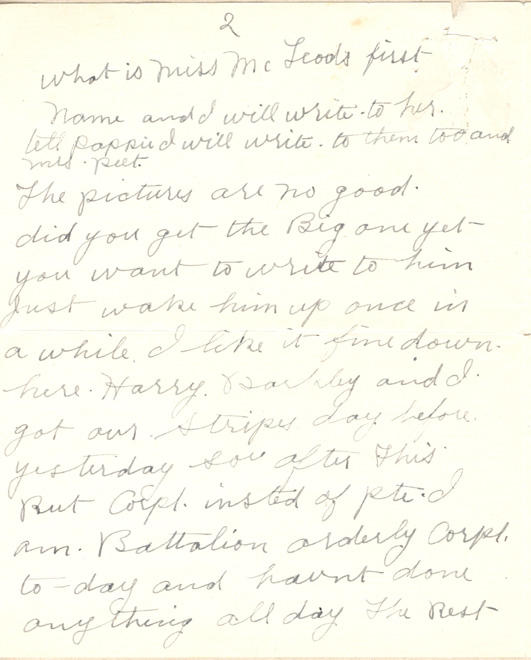 2
what is miss Mc Leods first
name and I will write to her.
tell pappie I will write to them too and
mrs. peet.
The pictures are no good.
did you get the Big one yet
you want to write to him
Just wake him up once in
a while. I like it fine down.
here. Harry. and I.
got our stripes day before.
yesterday so after This
Put Corpl. insted of pte. I
am. Battalion orderly Corpl.
to-day and havnt done
anything all day The Rest